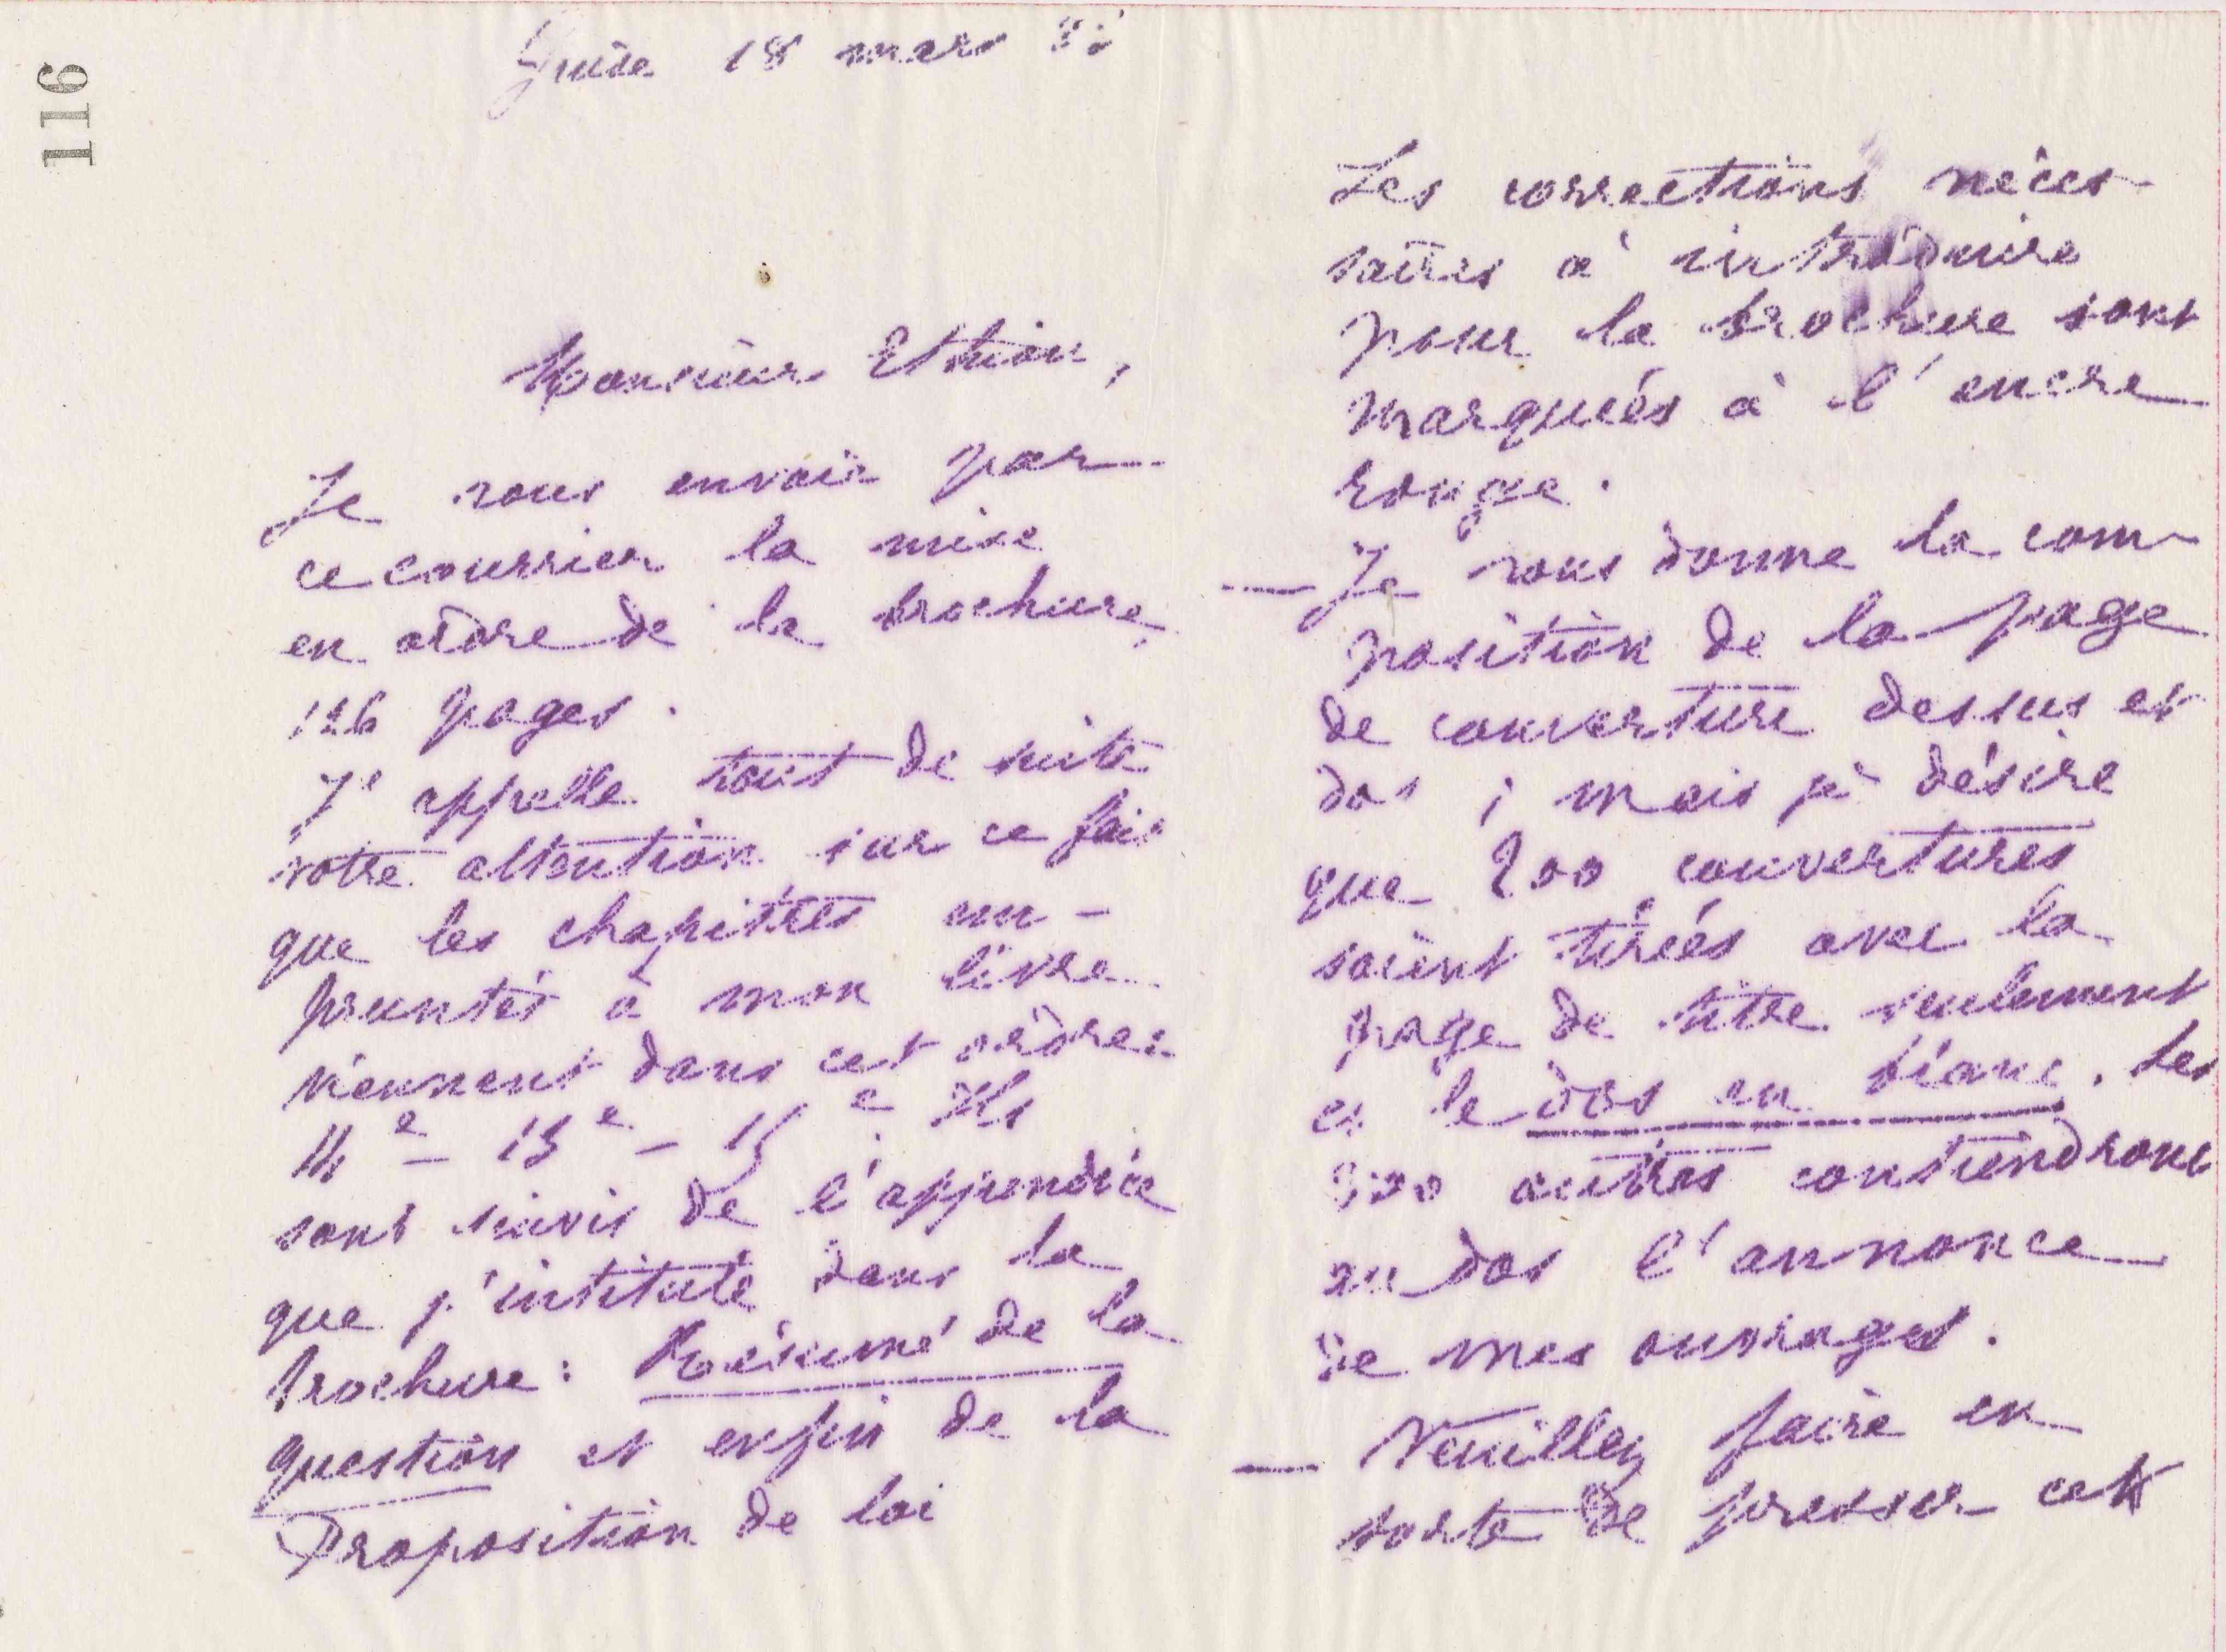 116
Guise 18 mars
Monsieur Ethiou,
Je vous envoie par
ce courrier la mise
en ordre de la brochure,
126 pages.
J'appelle tout de suite
votre attention sur ce fait
que les chapitres em-
pruntés à mon livre
viennent dans cet ordre:
14e - 13e - 15e. Ils
sont suivis de l'appendice
que j'intitule dans la
brochure : Résumé de la
question et enfin de la
Proposition de loi
Les corrections néces-
saires à introduire
pour la brochure sont
marquées à l'encre
rouge.
— Je vous donne la com-
position de la page
de couverture dessus et
dos ; mais je désire
que 200 couvertures
soient tirées avec la
page de titre seulement
et le dos en blanc. Les
300 autres contiendront
au dos l'annonce
de mes ouvrages.
— Veuillez faire en
sorte de presser cet